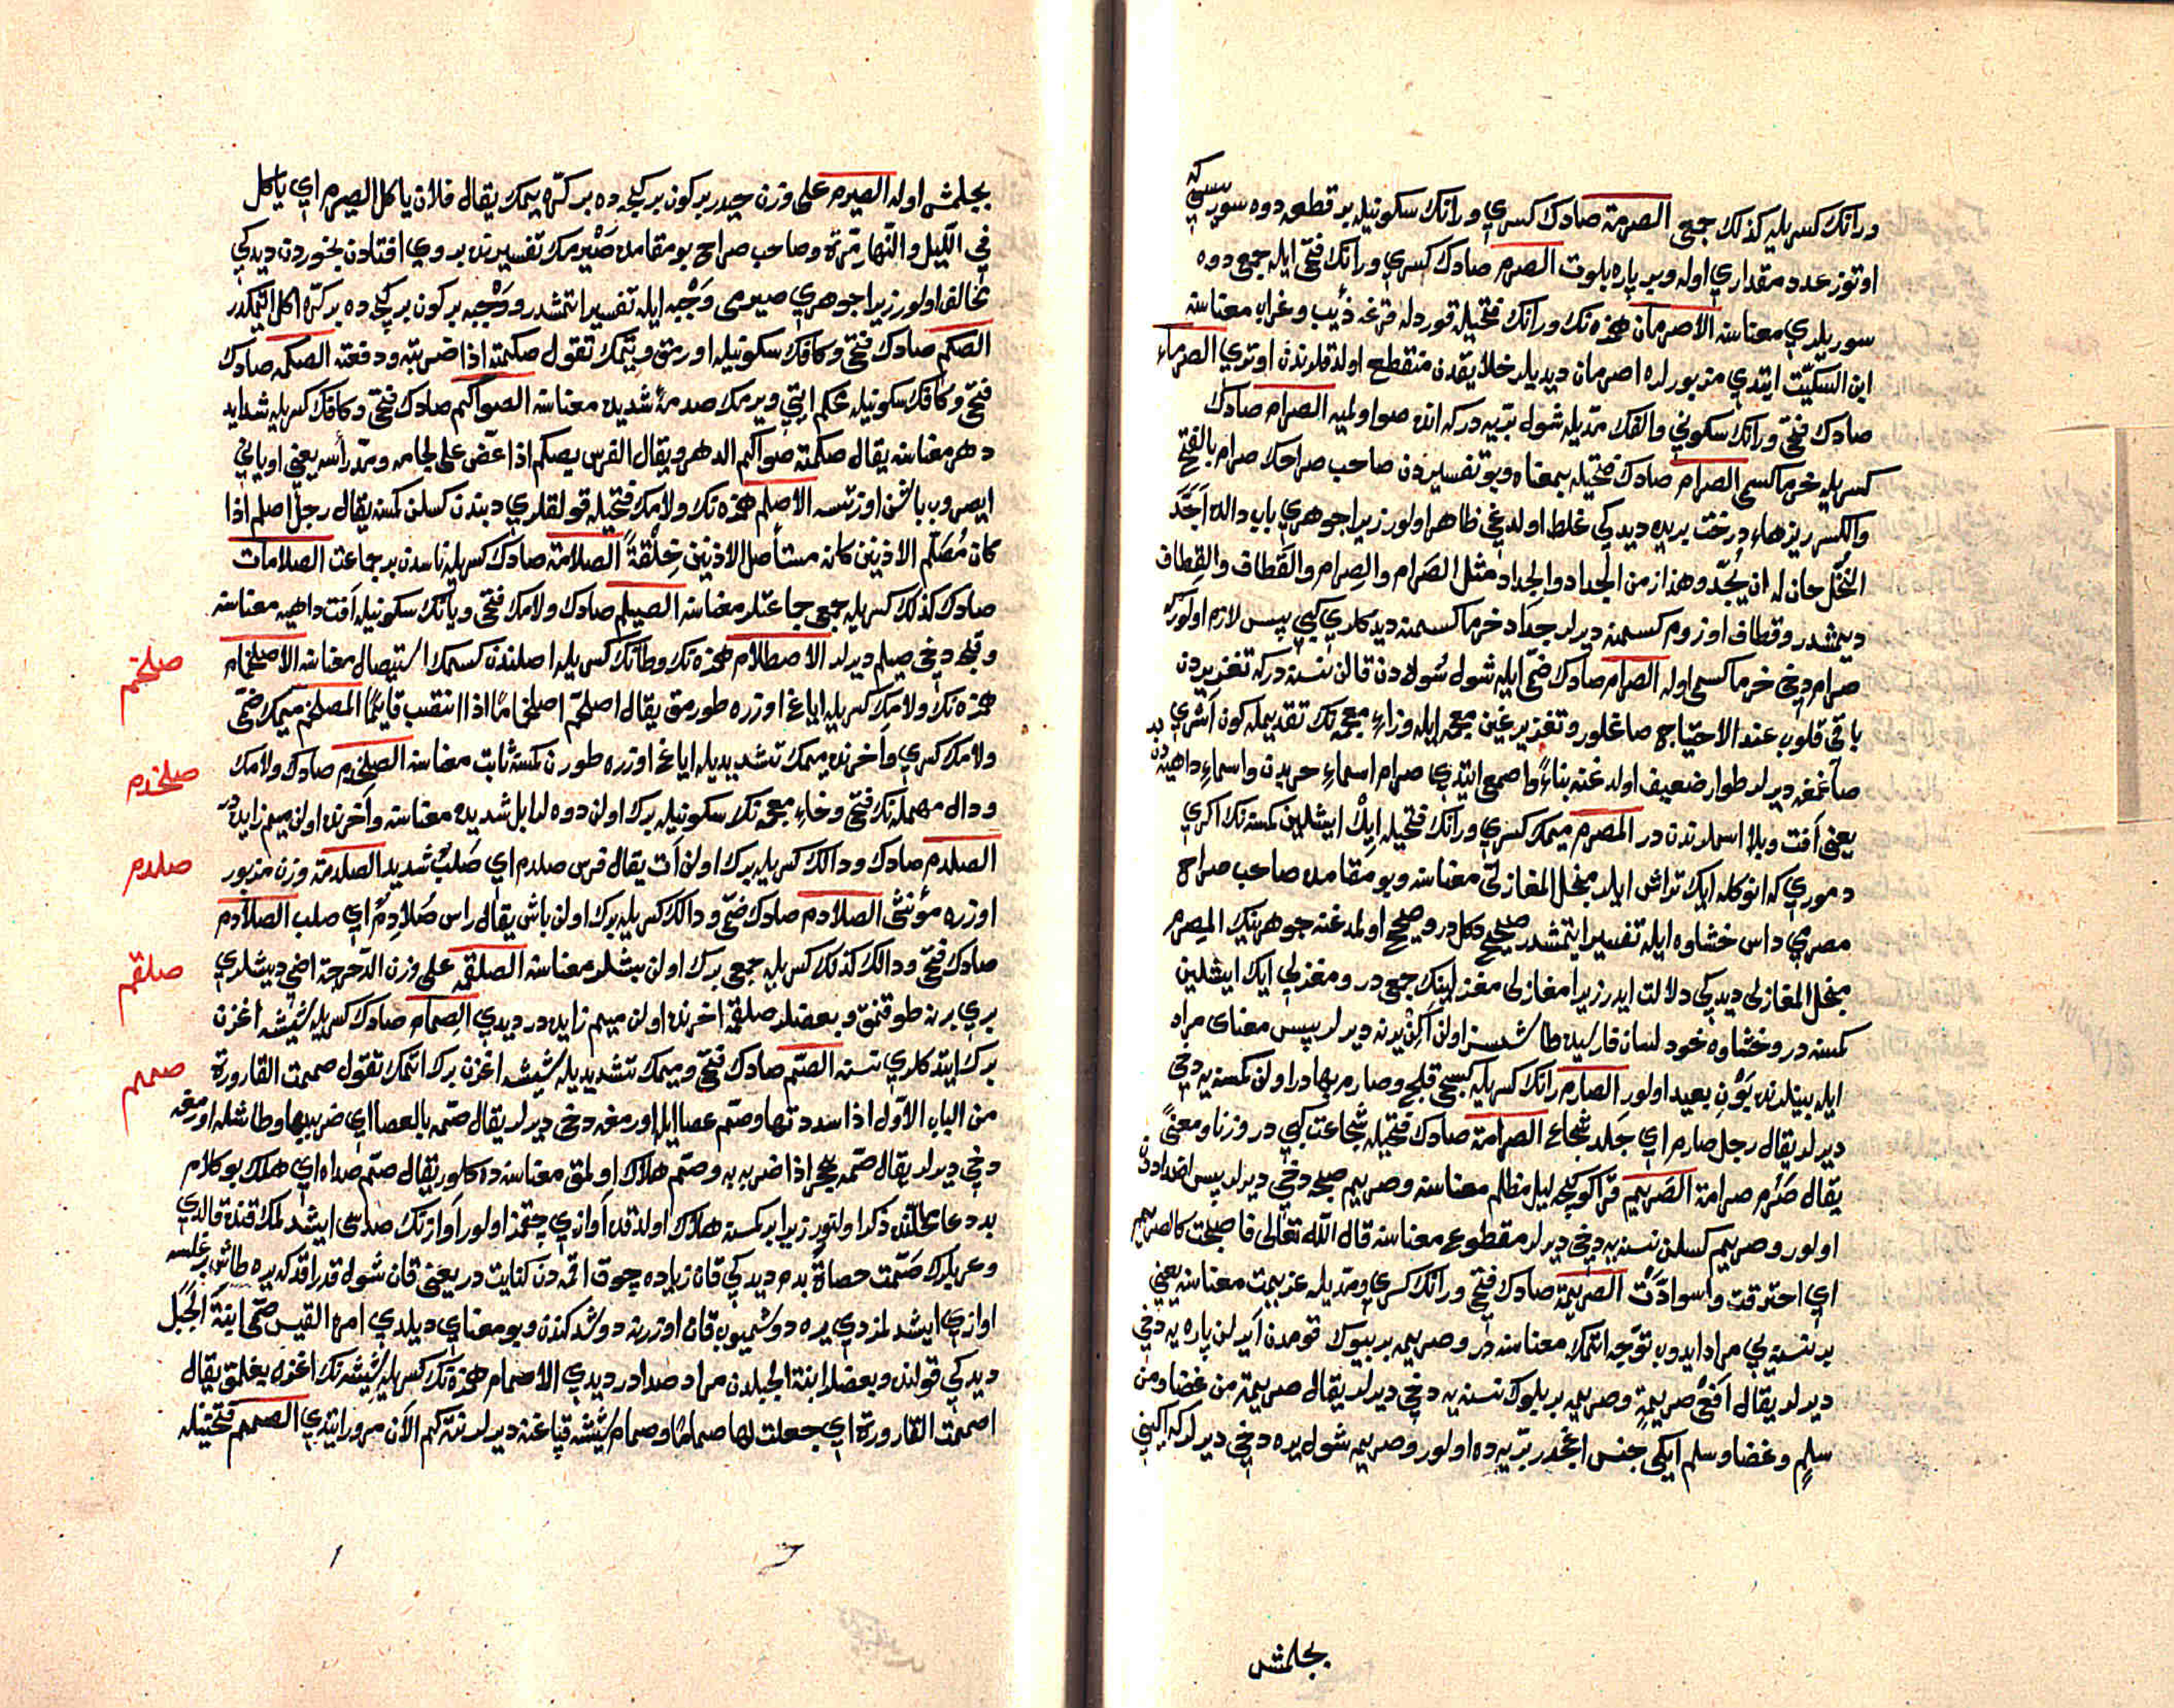 ورانك كسريله كذلك جمع الصرمة صادك كسري ورانك سكونيله بر قطعه دوه سوريسي كه
اوتوز عدد مقداري اوله وبر پاره بلوت الصرم صادك كسري ورانك فتحى ايله جمع دوه
سوريلري معناسنه الاصرمان همزه نك ورانك فتحيله قورد له قرغه ذئيب وغراب معناسنه
ابن السكيت ايتدي مزبورلره اصرمان ديديلر خلايقدن منقطع اولدقلرندن اوتري الصرماء
صادك فتحى ورانك سكوني والفك مديله شول بريه در كه انده صو اولميه الصرام صادك
كسريله خرما كسمى الصرام صادك فتحيله بمعناه وبو تفسيردن صاحب صراحك صرام بالفتح
والكسر ريزهاء درخت بريده ديدكي غلط اولدغي ظاهر اولور زيرا جوهري باب دالده اَجَدَّ
النخل حان له ان يُجَدّ وهذا زمن الجداد والجداد مثل الصَرام والصِرام والقَطاف والقِطاف
ديمشدر وقطاف اوزوم كسمنه ديرلر جداد خرما كسمنه ديدكلري كبي پس لازم اولور كه
صرام دخي خرما كسمى اوله الصرام صادك ضمى ايله شول سُولادن قالن نسنه در كه تغزيردن
باقي قلوب عند الاحتياج صاغلور وتغزير غين معجمه ايله وزاء معجمه نك تقديميله كون آشري
صاغمغه ديرلر طوار ضعيف اولدغنه بناءً واصمعي ايتدي صرام اسماء حربدن واسماء داهيه دن
يعني آفت وبلا اسملرندن در المصرم ميمك كسري ورانك فتحيله ايك ايشلين كمسنه نك اكري
دموري كه انوكله ايك تراش ايلر منجل المغازلى معناسنه وبو مقامده صاحب صراح
مصرمي داس خشاوه ايله تفسير ايتمشدر صحيح دكلدر وصحيح اولمدغنه جوهرينك المصرم
منجل المغازلى ديدكي دلالت ايدر زيرا مغازلى مغزلينك جمع در ومغزلى ايك ايشلين
كمسنه در وخشاوه خود لسان فارسيده طاشسز اولن اكن يرنه ديرلر پس معناى مراد
ايله بينلرنده بَوْن بعيد اولور الصارم رانك كسريله كسجى قلج وصارم بهادر اولن كمسنه يه دخي
ديرلر يقال رجل صارم اي جَلد شجاع الصرامة صادك فتحيله شجاعت كبي در وزنا ومعنىً
يقال صَرُم صرامة الصَريم قراكو كيجه ليل مظلم معناسنه وصريم صبحه دخي ديرلر پس اضداددن
اولور وصريم كسلن نسنه يه دخي ديرلر مقطوع معناسنه قال الله تعالى فاصبحت كالصريم
اي احترقت واسوادّت الصريمة صادك فتحي ورانك كسري ومديله عزيمت معناسنه يعني
بر نسنه يي مراد ايدوب توجه اتمك معناسنه در وصريمه بر بيوك قومدن آيرلن پاره يه دخي
ديرلر يقال اَفعَى صريمةٍ وصريمه بر بلوك نسنه يه دخي ديرلر يقال صريمة من غضا ومن
سلمٍ وغضا وسلم ايكى جنس اغجدر بريه ده اولور وصريمه شول يره دخي ديرلر كه اكيني
بچلمش
بچلمش اوله الصيرم على وزن حيدر بر كون بر كيجه ده بر كره يمك يقال فلان ياكل الصيرم اي ياكل
في الليل والنهار مرّة وصاحب صراح بو مقامده صَيْرمك تفسيرنده بروي افتادن بخوردن ديدكي
مخالف اولور زيرا جوهري صيرمى وَجْبه ايله تفسير اتمشدر ووَجْبه بر كون بر كيجه ده بر كره اكل اتمكدر
الصكم صادك فتحى وكافك سكونيله اورمق ويتمك تقول صكمته اذا ضربته ودفعته الصكمه صادك
فتحى وكافك سكونيله محكم ايتى ويرمك صدمهٔ شديده معناسنه الصواكم صادك فتحى وكافك كسريله شدايد
دهر معناسنه يقال صكمته صواكم الدهر ويقال الفرس يصكم اذا عضّ على لجامه ومدّ رأسه يعني اوياني
ايصروب باشن اوزتسه الاصلم همزه نك ولامك فتحيله قولقلري دبندن كسلن كمسنه يقال رجل اصلم اذا
كان مُصَلّم الاذنين كان مستأصل الاذنين خِلقةً الصلامة صادك كسريله ناسدن بر جماعت الصلامات
صادك كذلك كسريله جمعى جماعتلر معناسنه الصيلم صادك ولامك فتحى ويانك سكونيله آفت داهيه معناسنه
وقلجه دخي صيلم ديرلر الاصطلام همزه نك وطانك كسريله اصلندن كسمك استيصال معناسنه الاصلخمام
همزه نك ولامك كسريله اياغ اوزره طورمق يقال اصلخمّ اصلخمامًا اذا انتصب قايمًا المصلخم ميمك ضمى
ولامك كسري وآخرنده ميمك تشديديله اياغ اوزره طورن كمسنه ثابت معناسنه الصلخدم صادك ولامك
ودال مهمله نك فتحى وخاء معجمه نك سكونيله برك اولن دوه لر ابل شديده معناسنه وآخرنده اولن ميم زايده در
الصلدم صادك ودالك كسريله برك اولن آت يقال فرس صلدم اي صَلبٌ شديد الصلدمة وزن مزبور
اوزره مؤنثى الصلادم صادك ضمى ودالك كسريله برك اولن باش يقال راس صُلادِمٌ اي صلب الصلادم
صادك فتحى ودالك كذلك كسريله جمعى برك اولن بشلر معناسنه الصلقمه على وزن الدحرجة اضى ديشلري
بري برنه طوقنمق وبعضلر صلقمه اخرنده اولن ميم زايده در ديدي الصِمام صادك كسريله شيشه اغزن
برك ايتدكلري نسنه الصمّ صادك فتحى وميمك تشديديله شيشه اغزن برك اتمك تقول صممت القارورة
من الباب الاوّل اذا سددتها وصم عصا ايله اورمغه دخى ديرلر يقال صمّه بالعصا اي ضربه بها وطاشله اورمغه
دخي ديرلر يقال صمّه بحجر اذا ضربه به وصمّ هلاك اولمق معناسنه ده كلور يقال صمّ صداه اي هلك بو كلام
بد دعا محلنده ذكر اولنور زيرا بر كمسنه هلاك اولدقده آوازي چقمز اولور آوازنك صداسى ايشدلمكدن قالدي
وعربلرك صَمّت حصاةٌ بدم ديدكي قان زياده چوق اقمه دن كنايت در يعني قان شول قدر اقدكه يره طاش براغلسه
اوازي ايشدلمزدي يره دوشميوب قان اوزرنه دوشدكندن وبو معنايي ديلدي امرا القيس صمّى ابنةَ الجَبَل
ديدكي قولنده وبعضلر ابنة الجبلدن مراد صدادر ديدي الاصمام همزه نك كسريله شيشه نك اغزه بغلمق يقال
اصممت القارورة اي جعلت لها صمامًا وصمام شيشه قپاغنه ديرلر نته كم الآن مرور ايتدي الصمم فتحتينله
صلخم
صلخدم
صلدم
صلقم
صمم